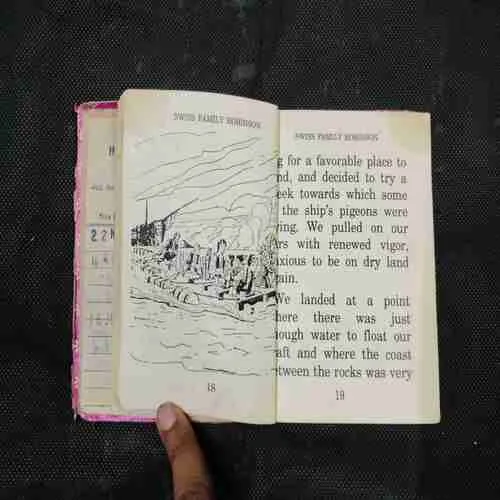 22
SWISS FAMILY ROBINSON
18
SWISS FAMILY ROBINSON
g for a favorable place to
nd, and decided to try a
eek towards which some
the ship's pigeons were
ing. We pulled on our
rs with renewed vigor,
xious to be on dry land
ain.
We landed at a point
here there was just
ough water to float our
aft and where the coast
tween the rocks was very
19